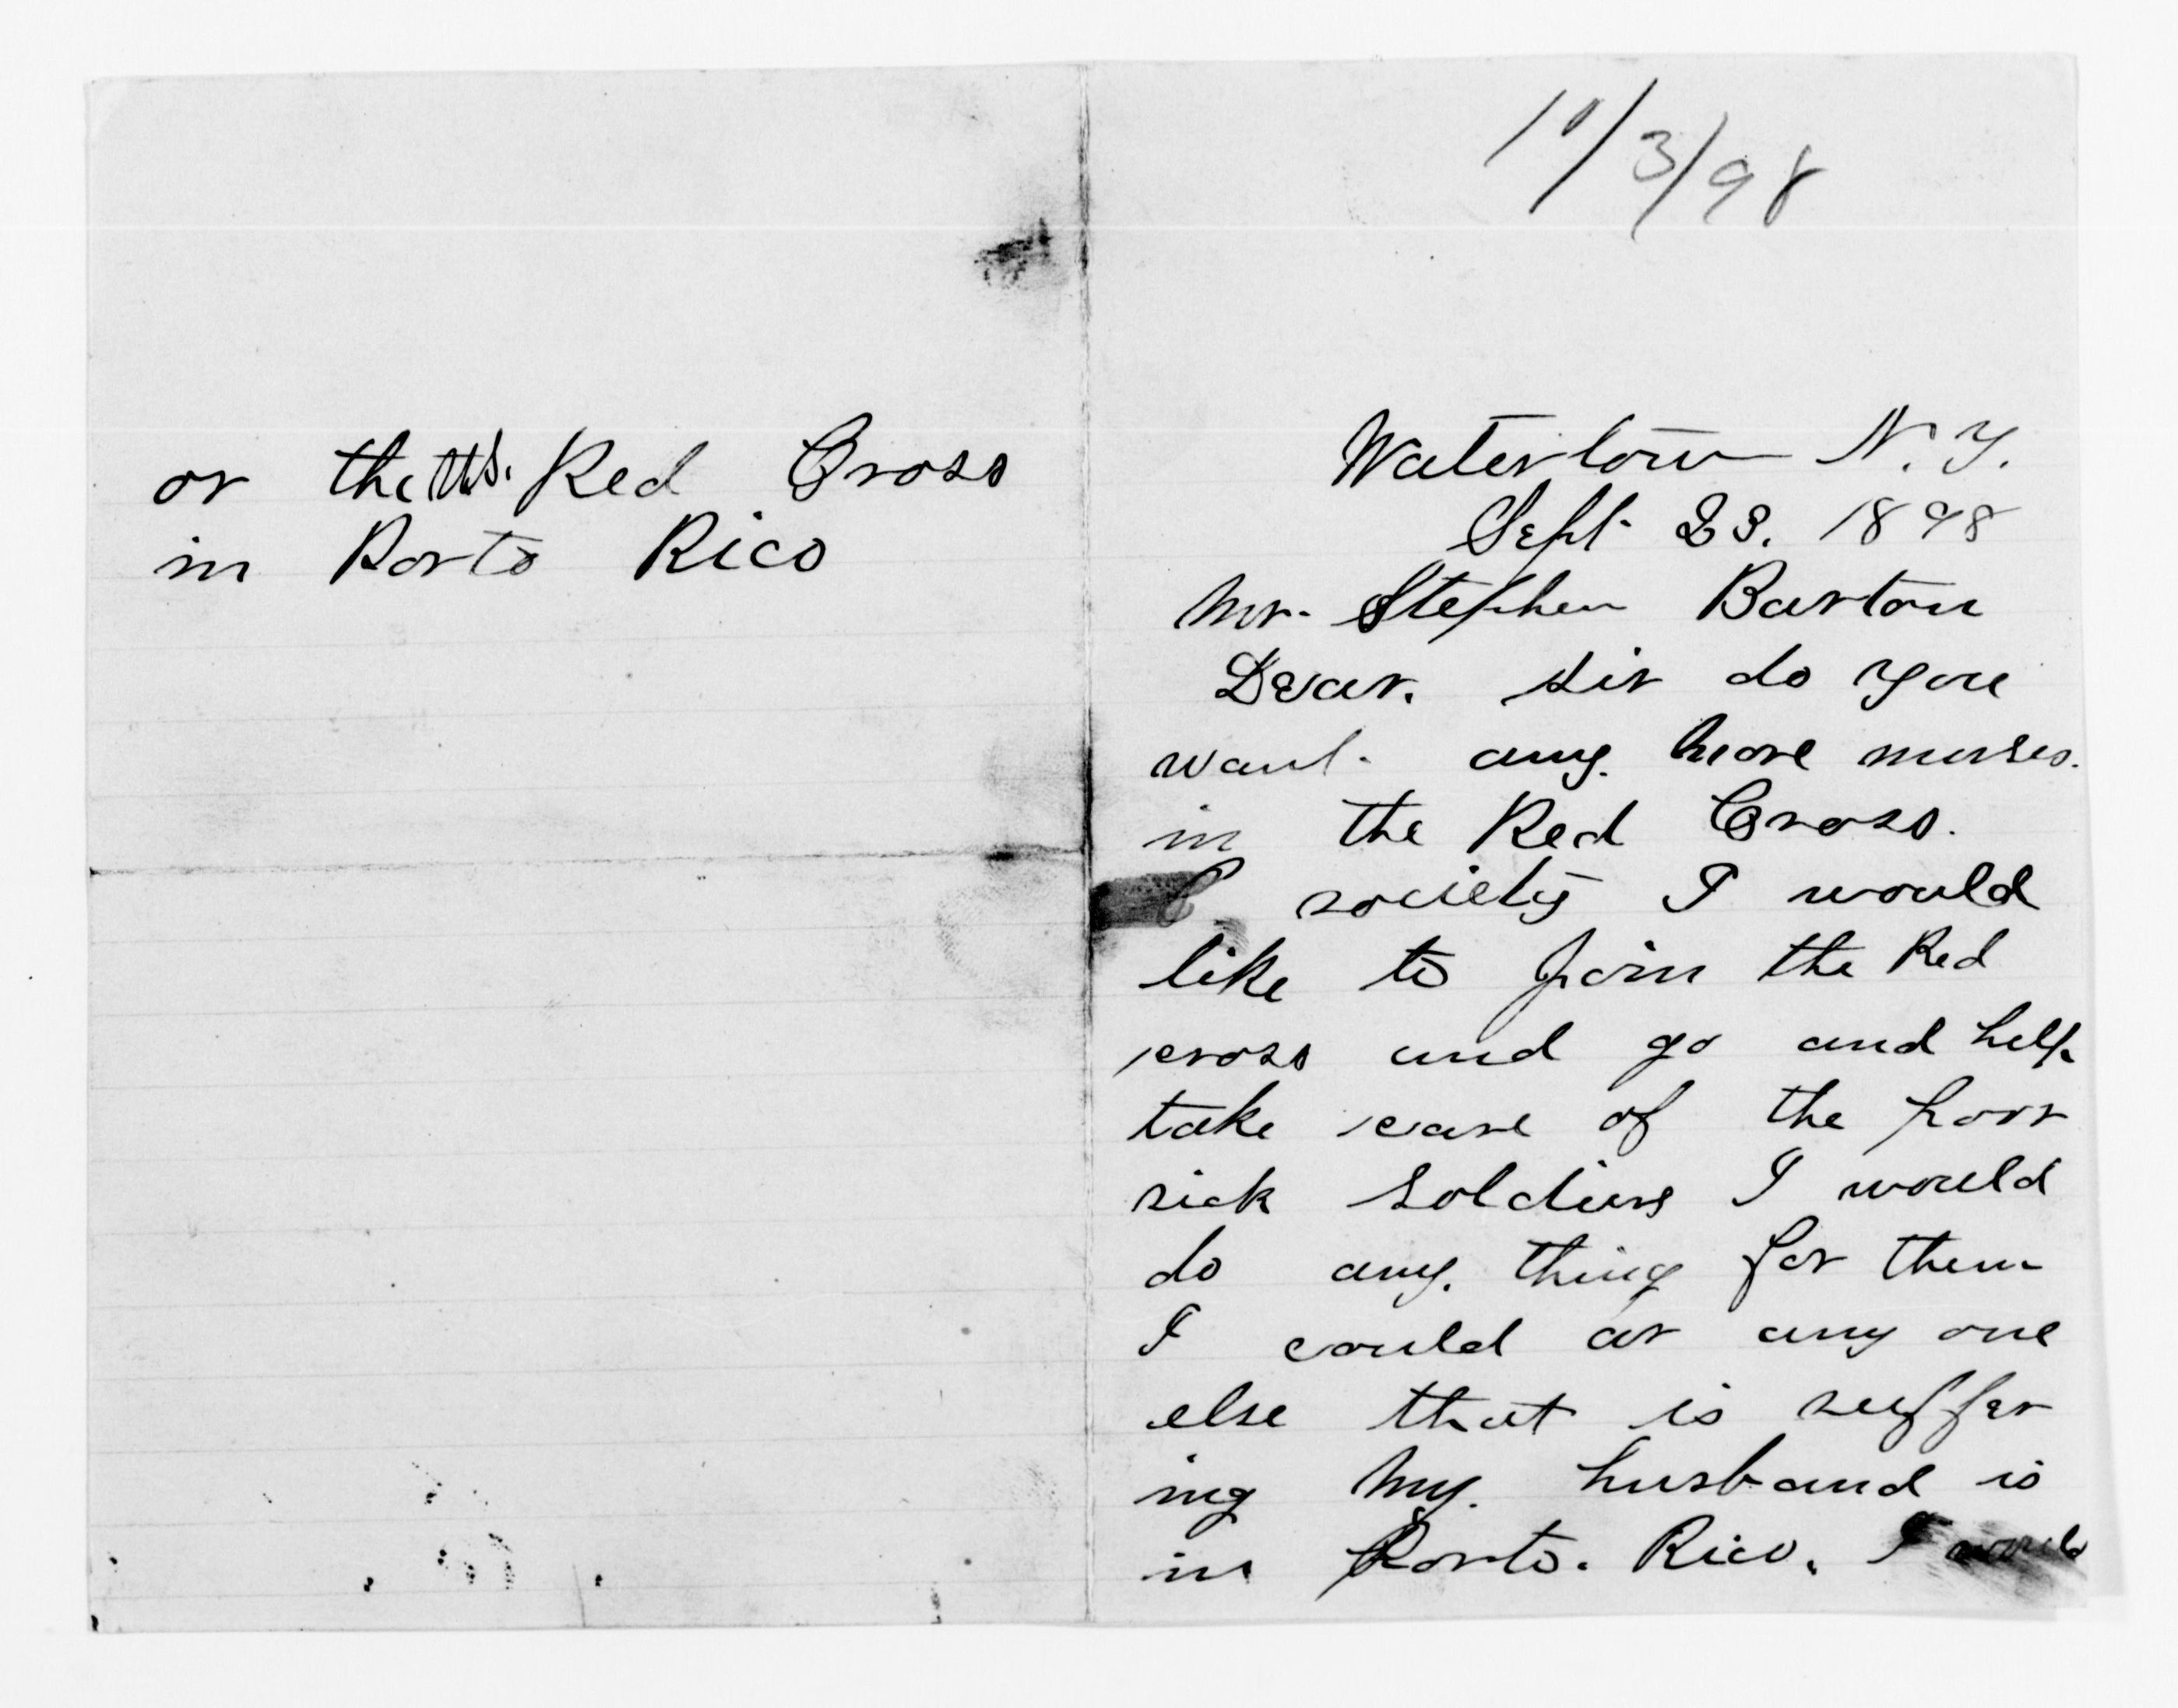 or the U.S. Red Cross
in Porto Rico
10/3/98
Watertown N.Y.
Sept. 23. 1898
Mr. Stephen Barton
Dear. sir do you
want. any. more nurses.
in the Red Cross.
society I would
like to join the Red
cross and go and help
take care of the poor
sick soldiers I would
do any. thing for them
I could or any one
else that is suffer
ing My. husband is
in Porto. Rico. I would